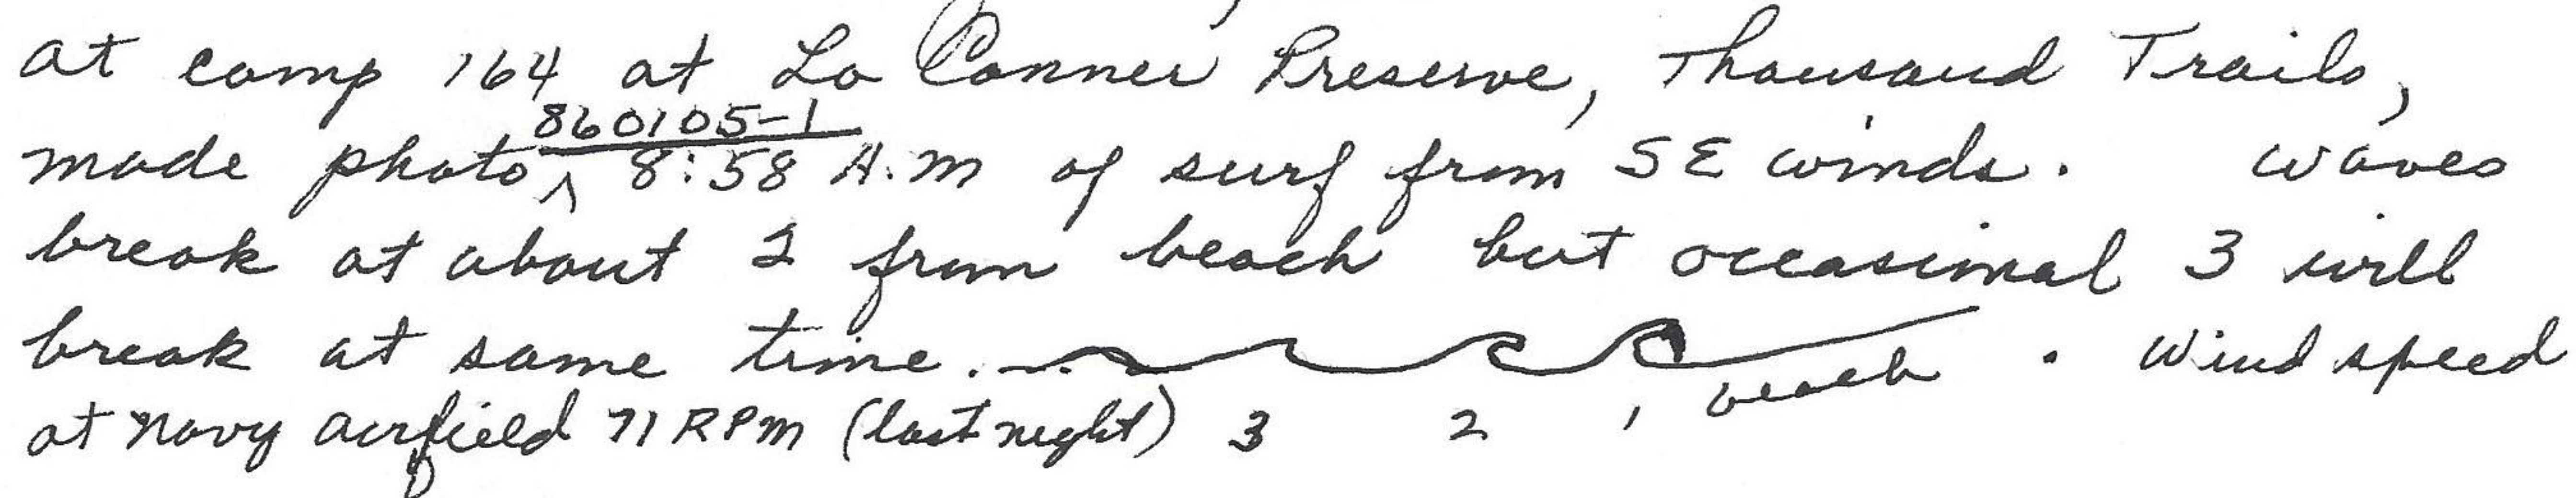 at camp 164 at La Conner Preserve, Thousand Trails,
860105-1
made photo ^ 8:58 A.M of surf from SE winds. Waves
break at about 2 from beach but occasional 3 will
break at same time. . Wind speed
beach
at Navy airfield 71 RPM (last night) 3 2 1